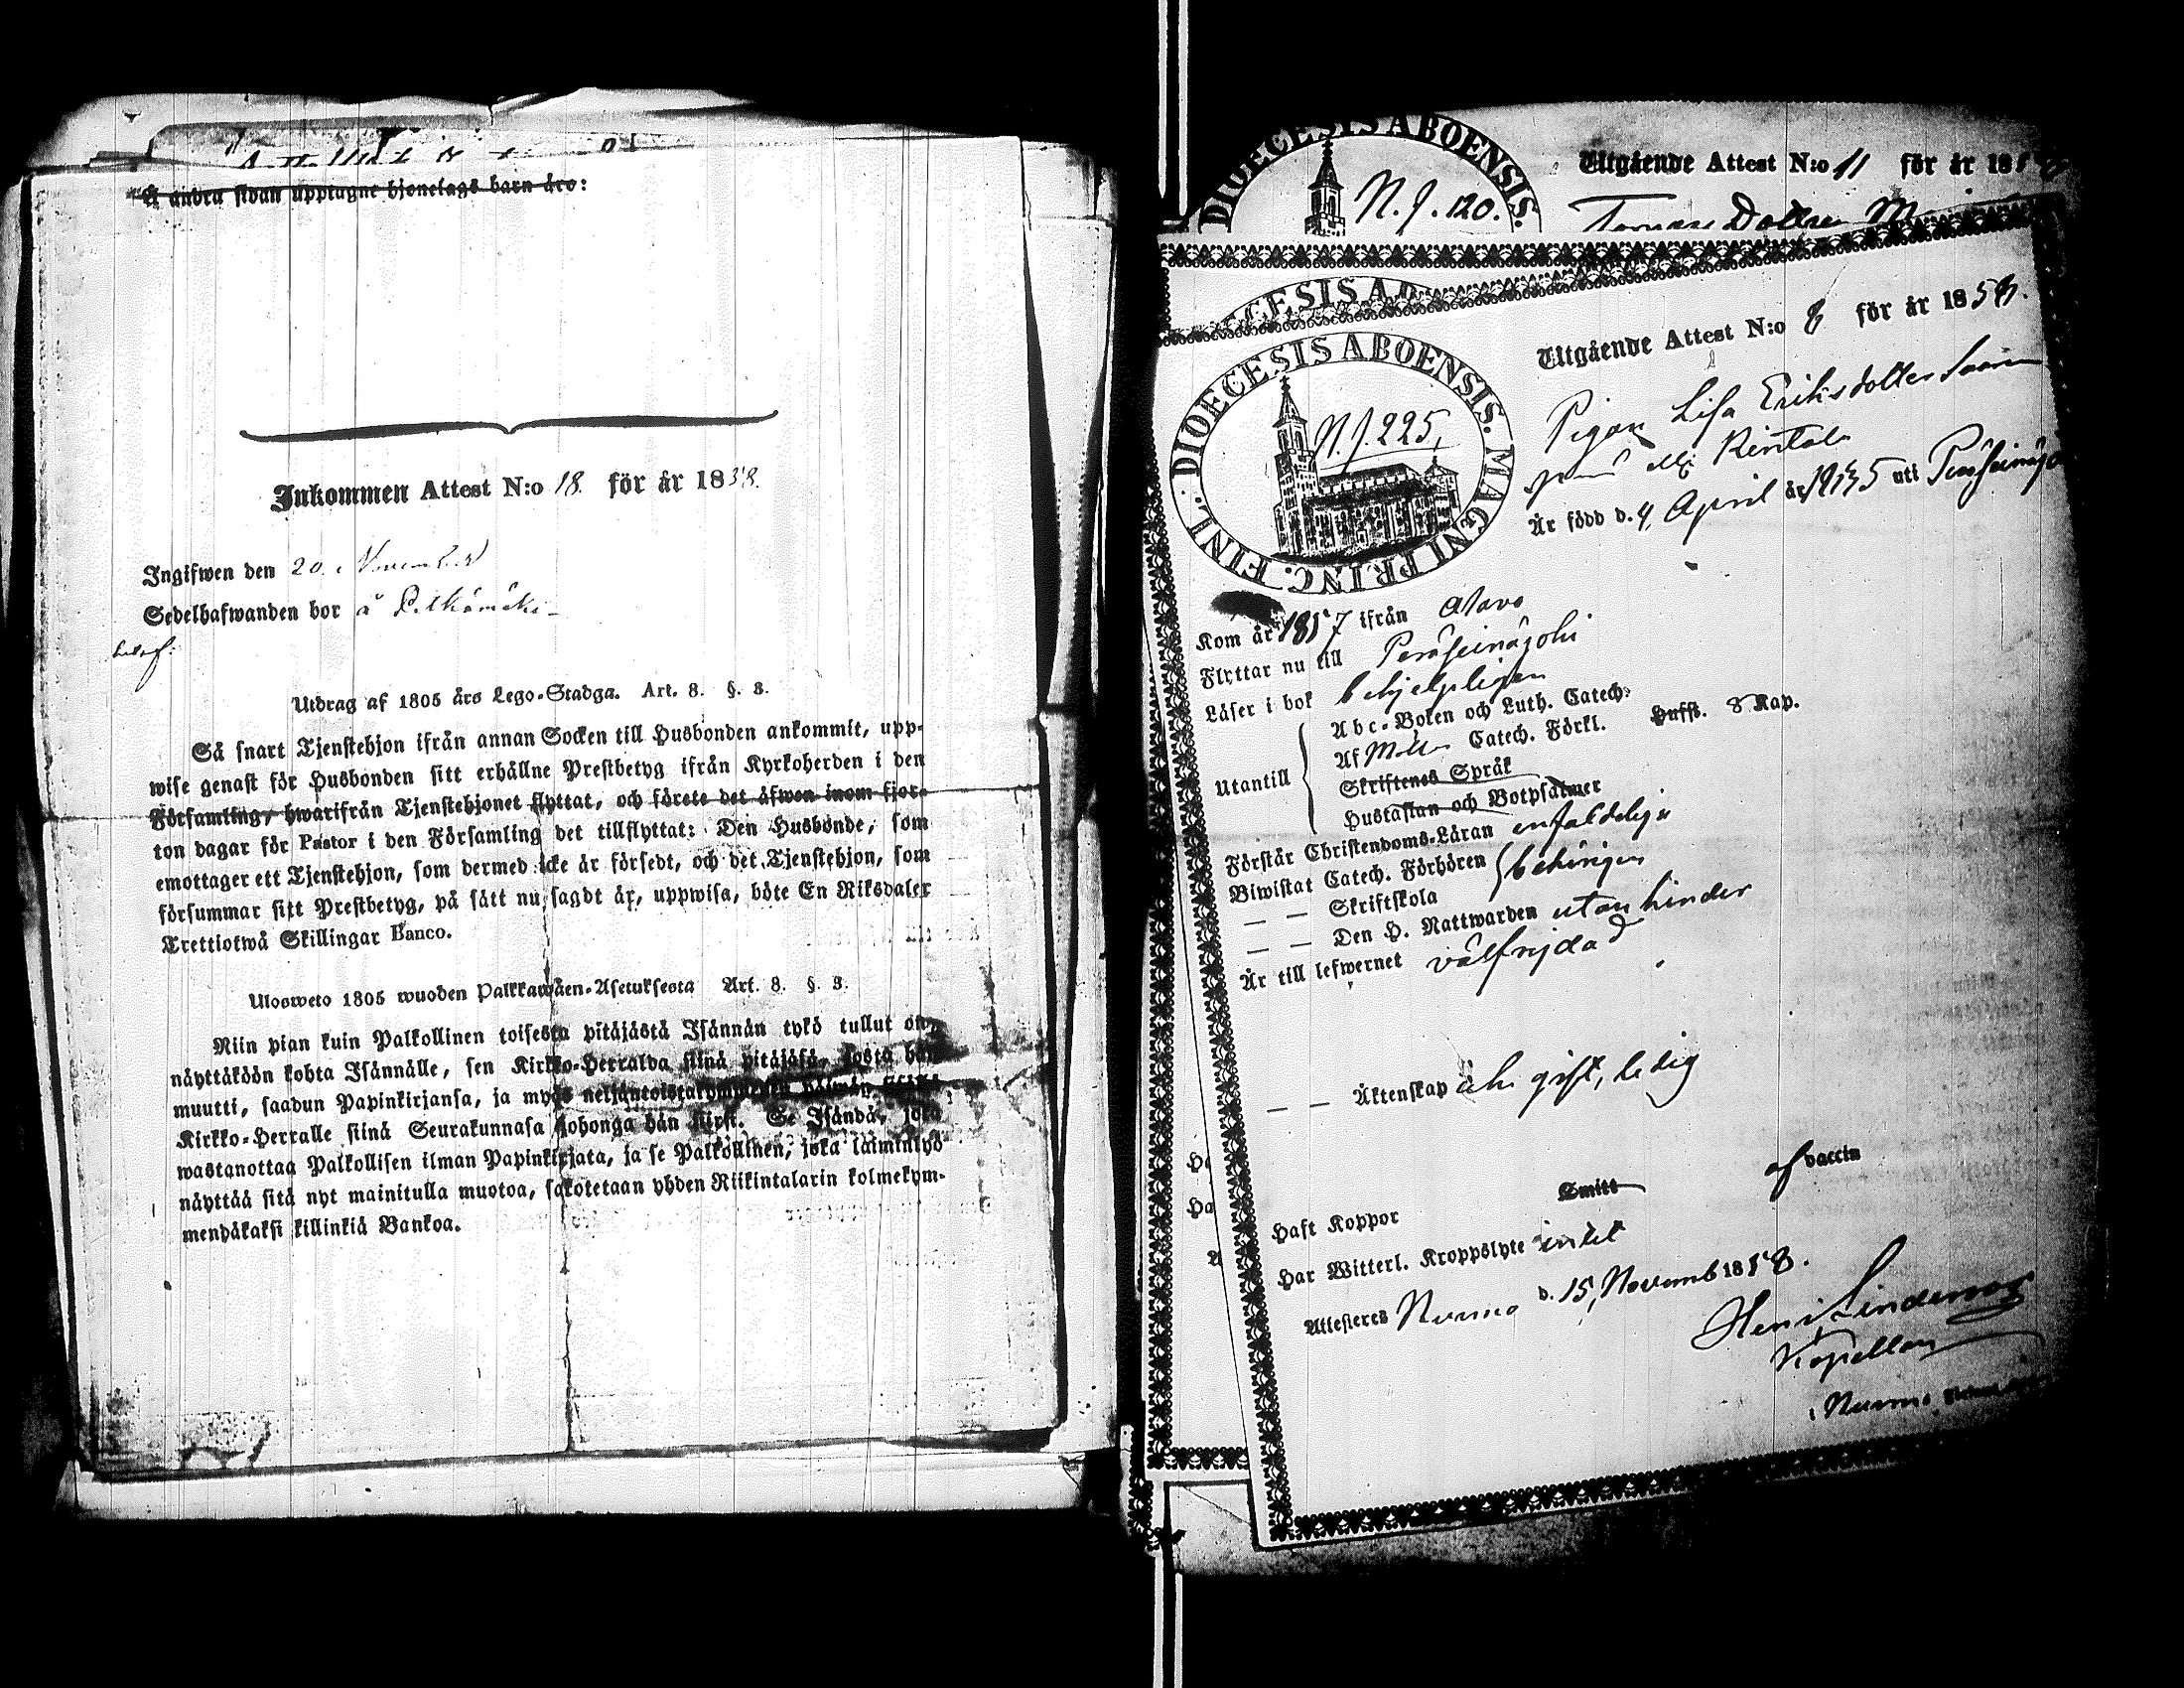 Å andra sidan upptagne hjonelags barn äro:
Inkommen Attest N:o 18. för år 1858.
Ingifwen den 20. November
Sedelhafwanden bor å Pitkämäki
Utdrag af 1805 års Lego-Stadga. Art. 8. §. 3.
Så snart Tjenstehjon ifrån annan Socken till Husbonden ankommit, upp-
wise genast för Husbonden sitt erhållne Prestbetyg ifrån Kyrkoherden i den
Församling, hwarifrån Tjenstehjonet flyttat, och förete det äfwen inom fjor-
ton dagar för Pastor i den Församling det tillflyttat: Den Husbonde, som
emottager ett Tjenstehjon, som dermed icke är försedt, och det Tjenstehjon, som
försummar sitt Prestbetyg, på sätt nu sagdt är, uppwisa, böte En Riksdaler
Trettiotwå Skillingar Banco.
Ulosweto 1805 wuoden Palkkawäen-Asetuksesta Art. 8. §. 3.
Niin pian kuin Palkollinen toisesta pitäjästä Isännän tykö tullut on,
näyttäköön kohta Isännälle, sen Kirkko-Herralda siinä pitäjäsä, josta hän
muutti, saadun Papinkirjansa, ja myös neljäntoistakymmenen päiwän sisään
Kirkko-Herralle siinä Seurakunnasa johonga hän siirst. Se Isändä, joka
wastanottaa Palkollisen ilman Papinkirjata, ja se Palkollinen, joka laiminlyö
näyttää sitä nyt mainitulla muotoa, sakotetaan yhden Riikintalarin kolmekym-
mendäkaksi killinkiä Bankoa.
DIOECESIS ABOENSIS.
N. J. 120.
Utgående Attest N:o 11 för år 18
DIOECESIS ABOENSIS. MAGNI PRINC. FINL.
N. J. 225,
Utgående Attest N:o 8 för år 1858.
Pigan Lisa Eriksdotter
Rintala
Är född d. 4, April år 1835 uti Peräseinäjo
Kom år 1857 ifrån Alavo
Flyttar nu till Peräseinäjoki
Läser i bok behjelpligen
Utantill
Abc-Boken och Luth. Catech.
Af Catech. Förkl. Husst. 8 Kap.
Skriftenes Språk
Hustaflan och Botpsalmer
Förstår Christendoms-Läran enfaldeligt
Biwistat Catech. Förhören behörigen
— — Skriftskola
— — Den H. Nattwarden utan hinder
Är till lefwernet välfrejdad
— — Äktenskap gift, ledig
Haft Koppor Smitt af vaccin
Har Witterl. Kroppslyte intet
Attesteras Nurmo d. 15, Novemb 1858.
Kapellan